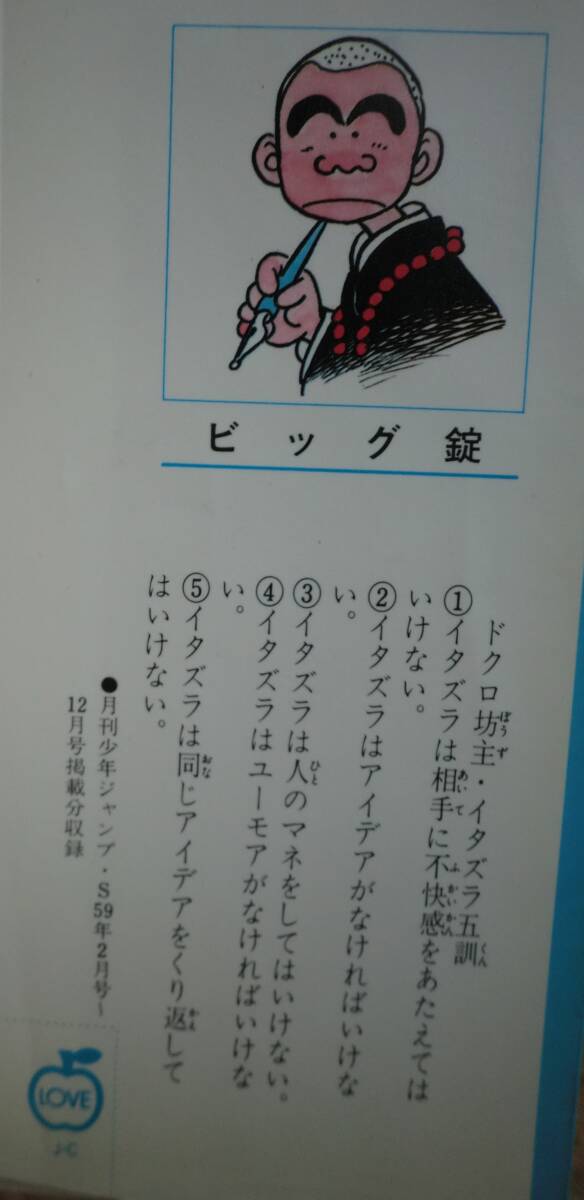 ビッグ錠
ドクロ坊主・イタズラ五訓
①イタズラは相手に不快感をあたえては
いけない。
②イタズラはアイデアがなければいけな
い。
③イタズラは人のマネをしてはいけない。
④イタズラはユーモアがなければいけな
い。
⑤イタズラは同じアイデアをくり返して
はいけない。
●月刊少年ジャンプ・S59年2月号~
12月号掲載分収録
LOVE
J-C